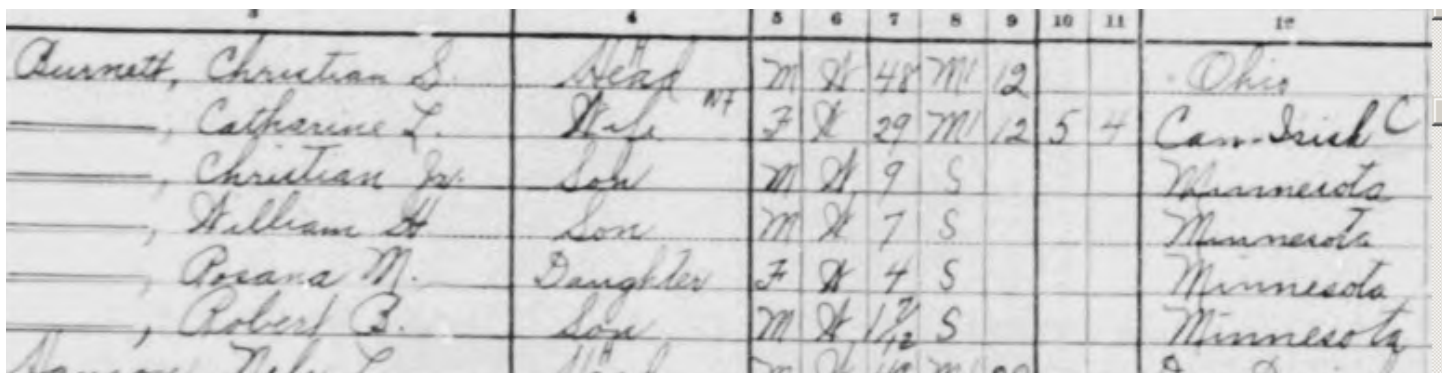 3 4 5 6 7 8 9 10 11 12
Burnett, Christian S. Head M W 48 M1 12 Ohio
——, Catharine L. Wife F W 29 M1 12 5 4 Can-Irish C
——, Christian Jr. Son M W 9 S Minnesota
——, William H Son M W 7 S Minnesota
——, Rosana M. Daughter F W 4 S Minnesota
——, Robert B. Son M W S Minnesota